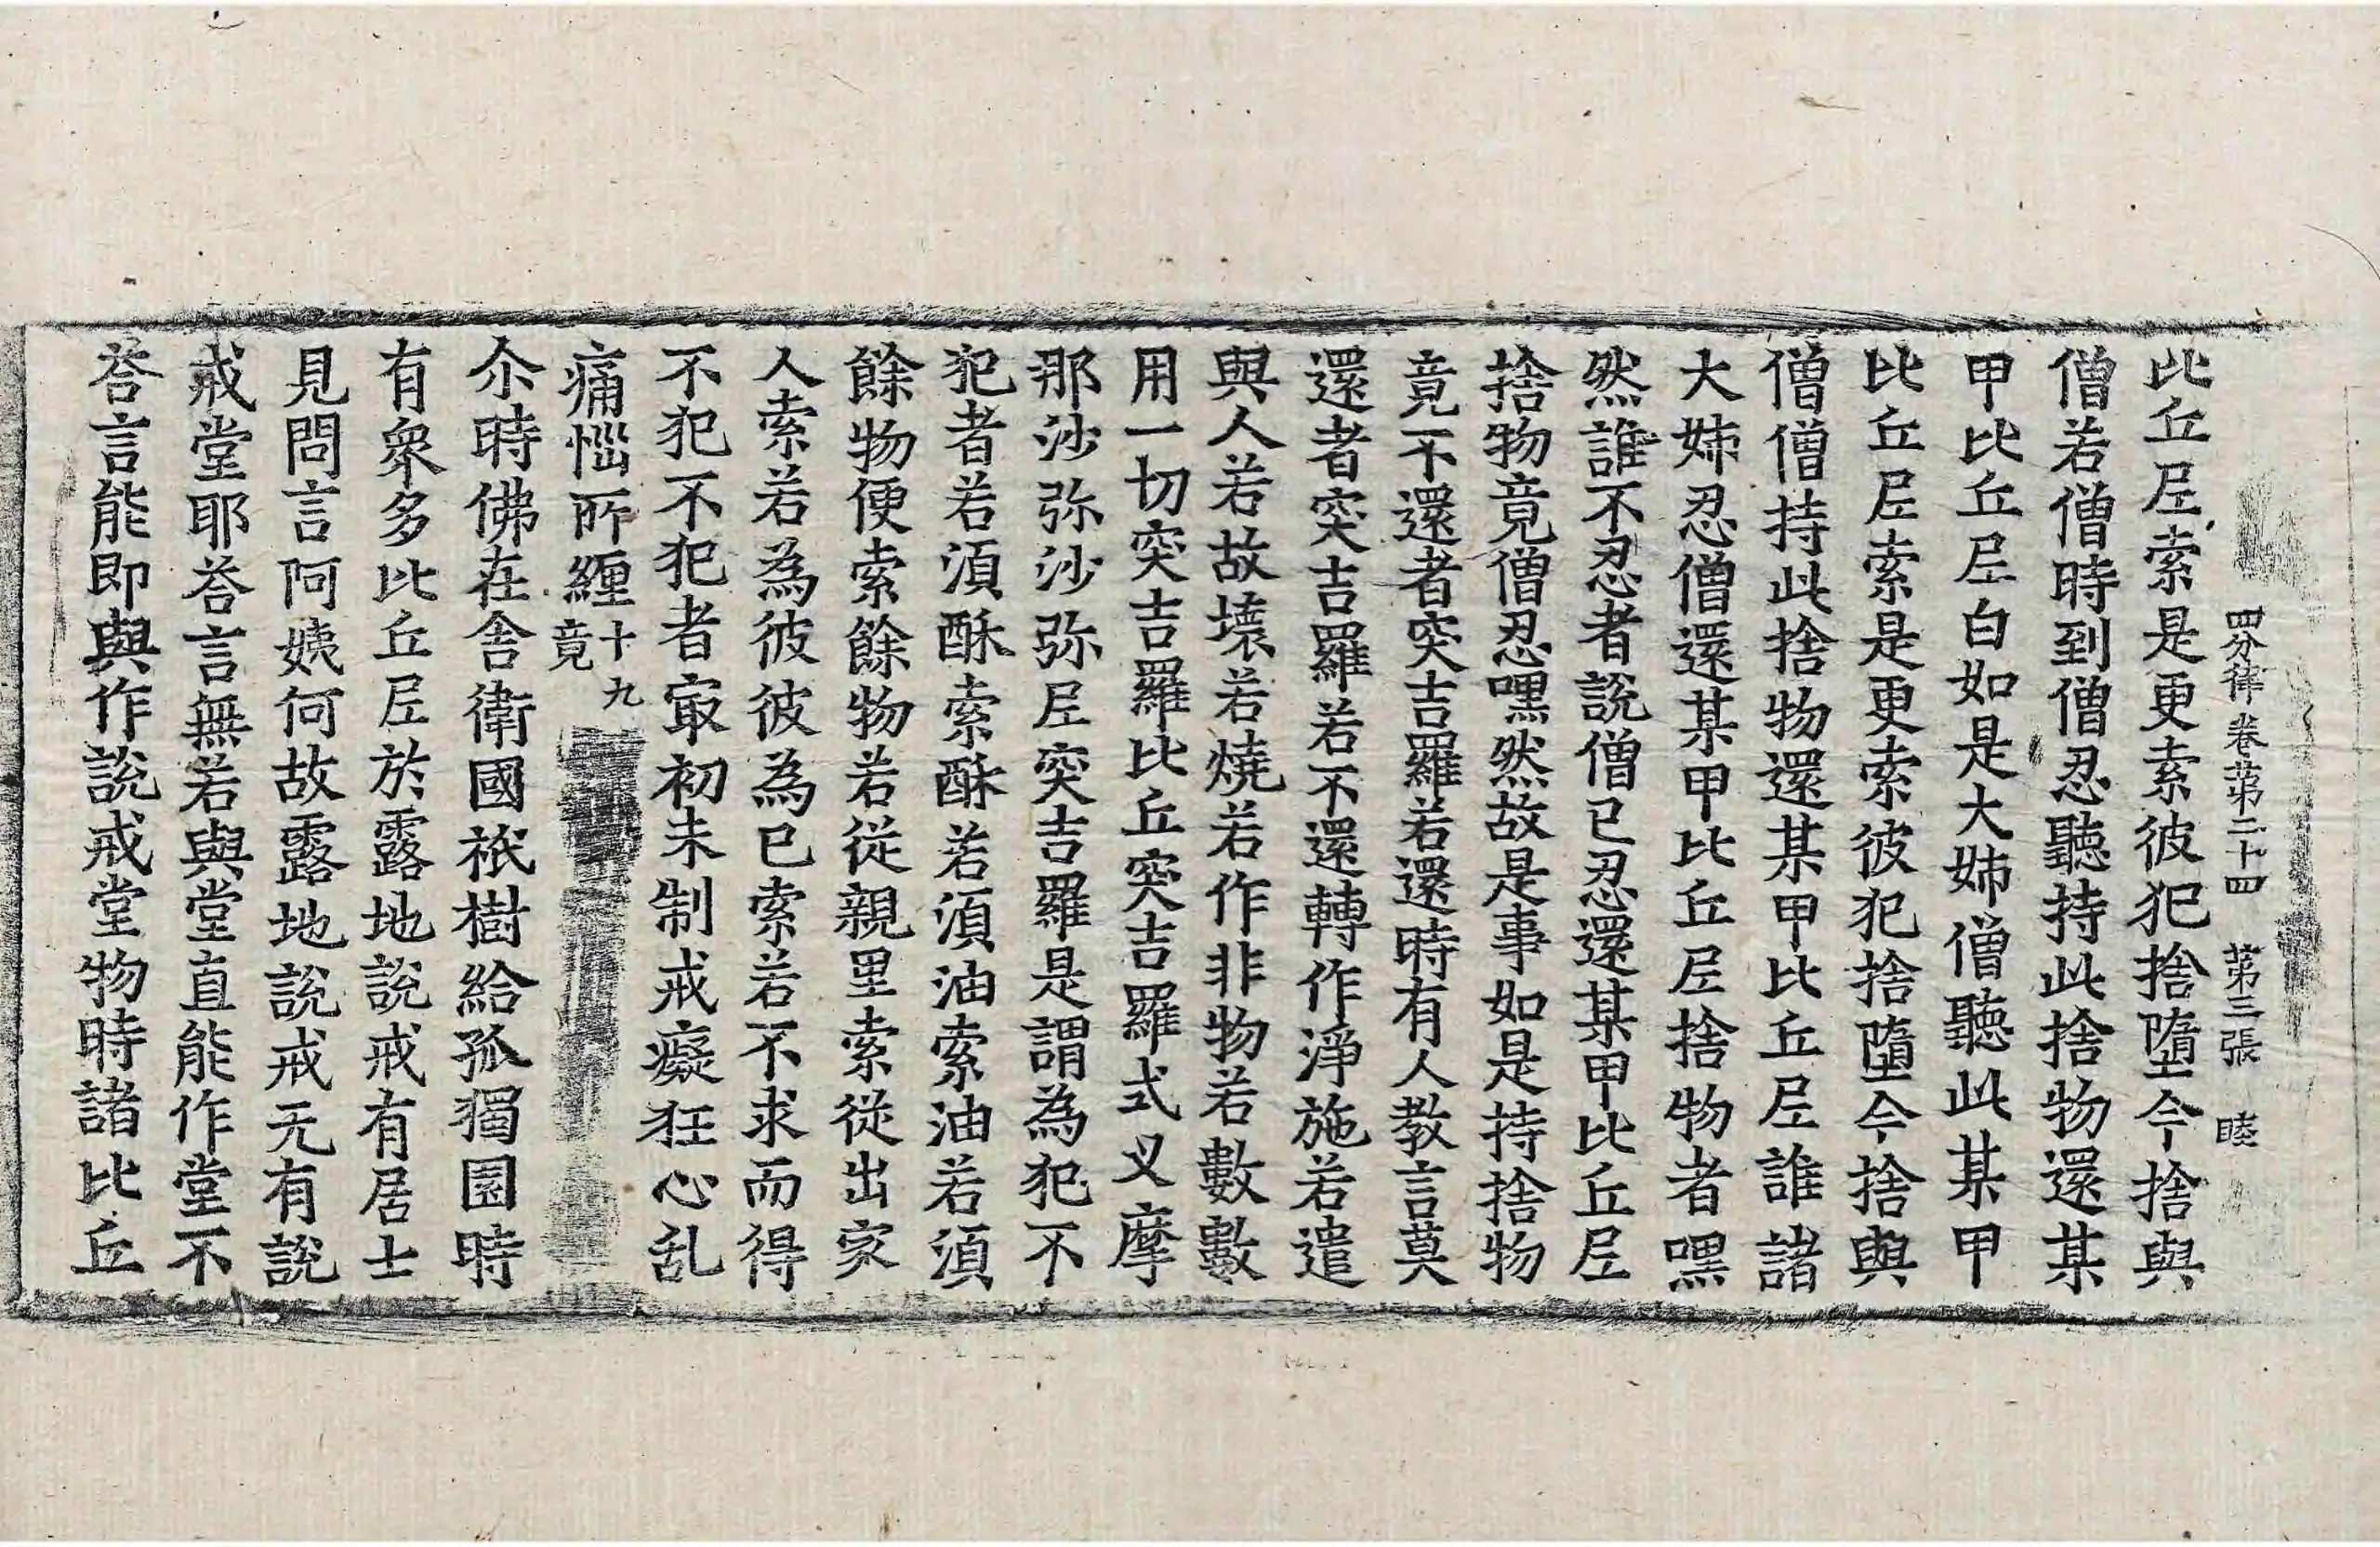 四分律卷第二十四　第三張　睦
此丘尼索是更索彼犯捨墮今捨與
僧若僧時到僧忍聽持此捨物還某
甲比丘尼白如是大姊僧聽此某甲
比丘尼索是更索彼犯捨墮今捨與
僧僧持此捨物還某甲比丘尼誰諸
大姊忍僧還某甲比丘尼捨物者嘿
然誰不忍者說僧已忍還某甲比丘尼
捨物竟僧忍嘿然故是事如是持捨物
竟不還者突吉羅若還時有人教言莫
還者突吉羅若不還轉作淨施若遣
與人若故壞若燒若作非物若數數
用一切突吉羅比丘突吉羅式叉摩
那沙弥沙弥尼突吉羅是謂為犯不
犯者若湏酥索酥若湏油索油若湏
餘物便索餘物若從親里索從出家
人索若為彼彼為已索若不求而得
不犯不犯者㝡初未制戒癡狂心乱
痛惱所纏十九竟
尒時佛在舍衛國祇樹給孤獨園時
有衆多比丘尼於露地說戒有居士
見問言阿姨何故露地說戒无有說
戒堂耶荅言無若與堂直能作堂不
荅言能即與作說戒堂物時諸比丘